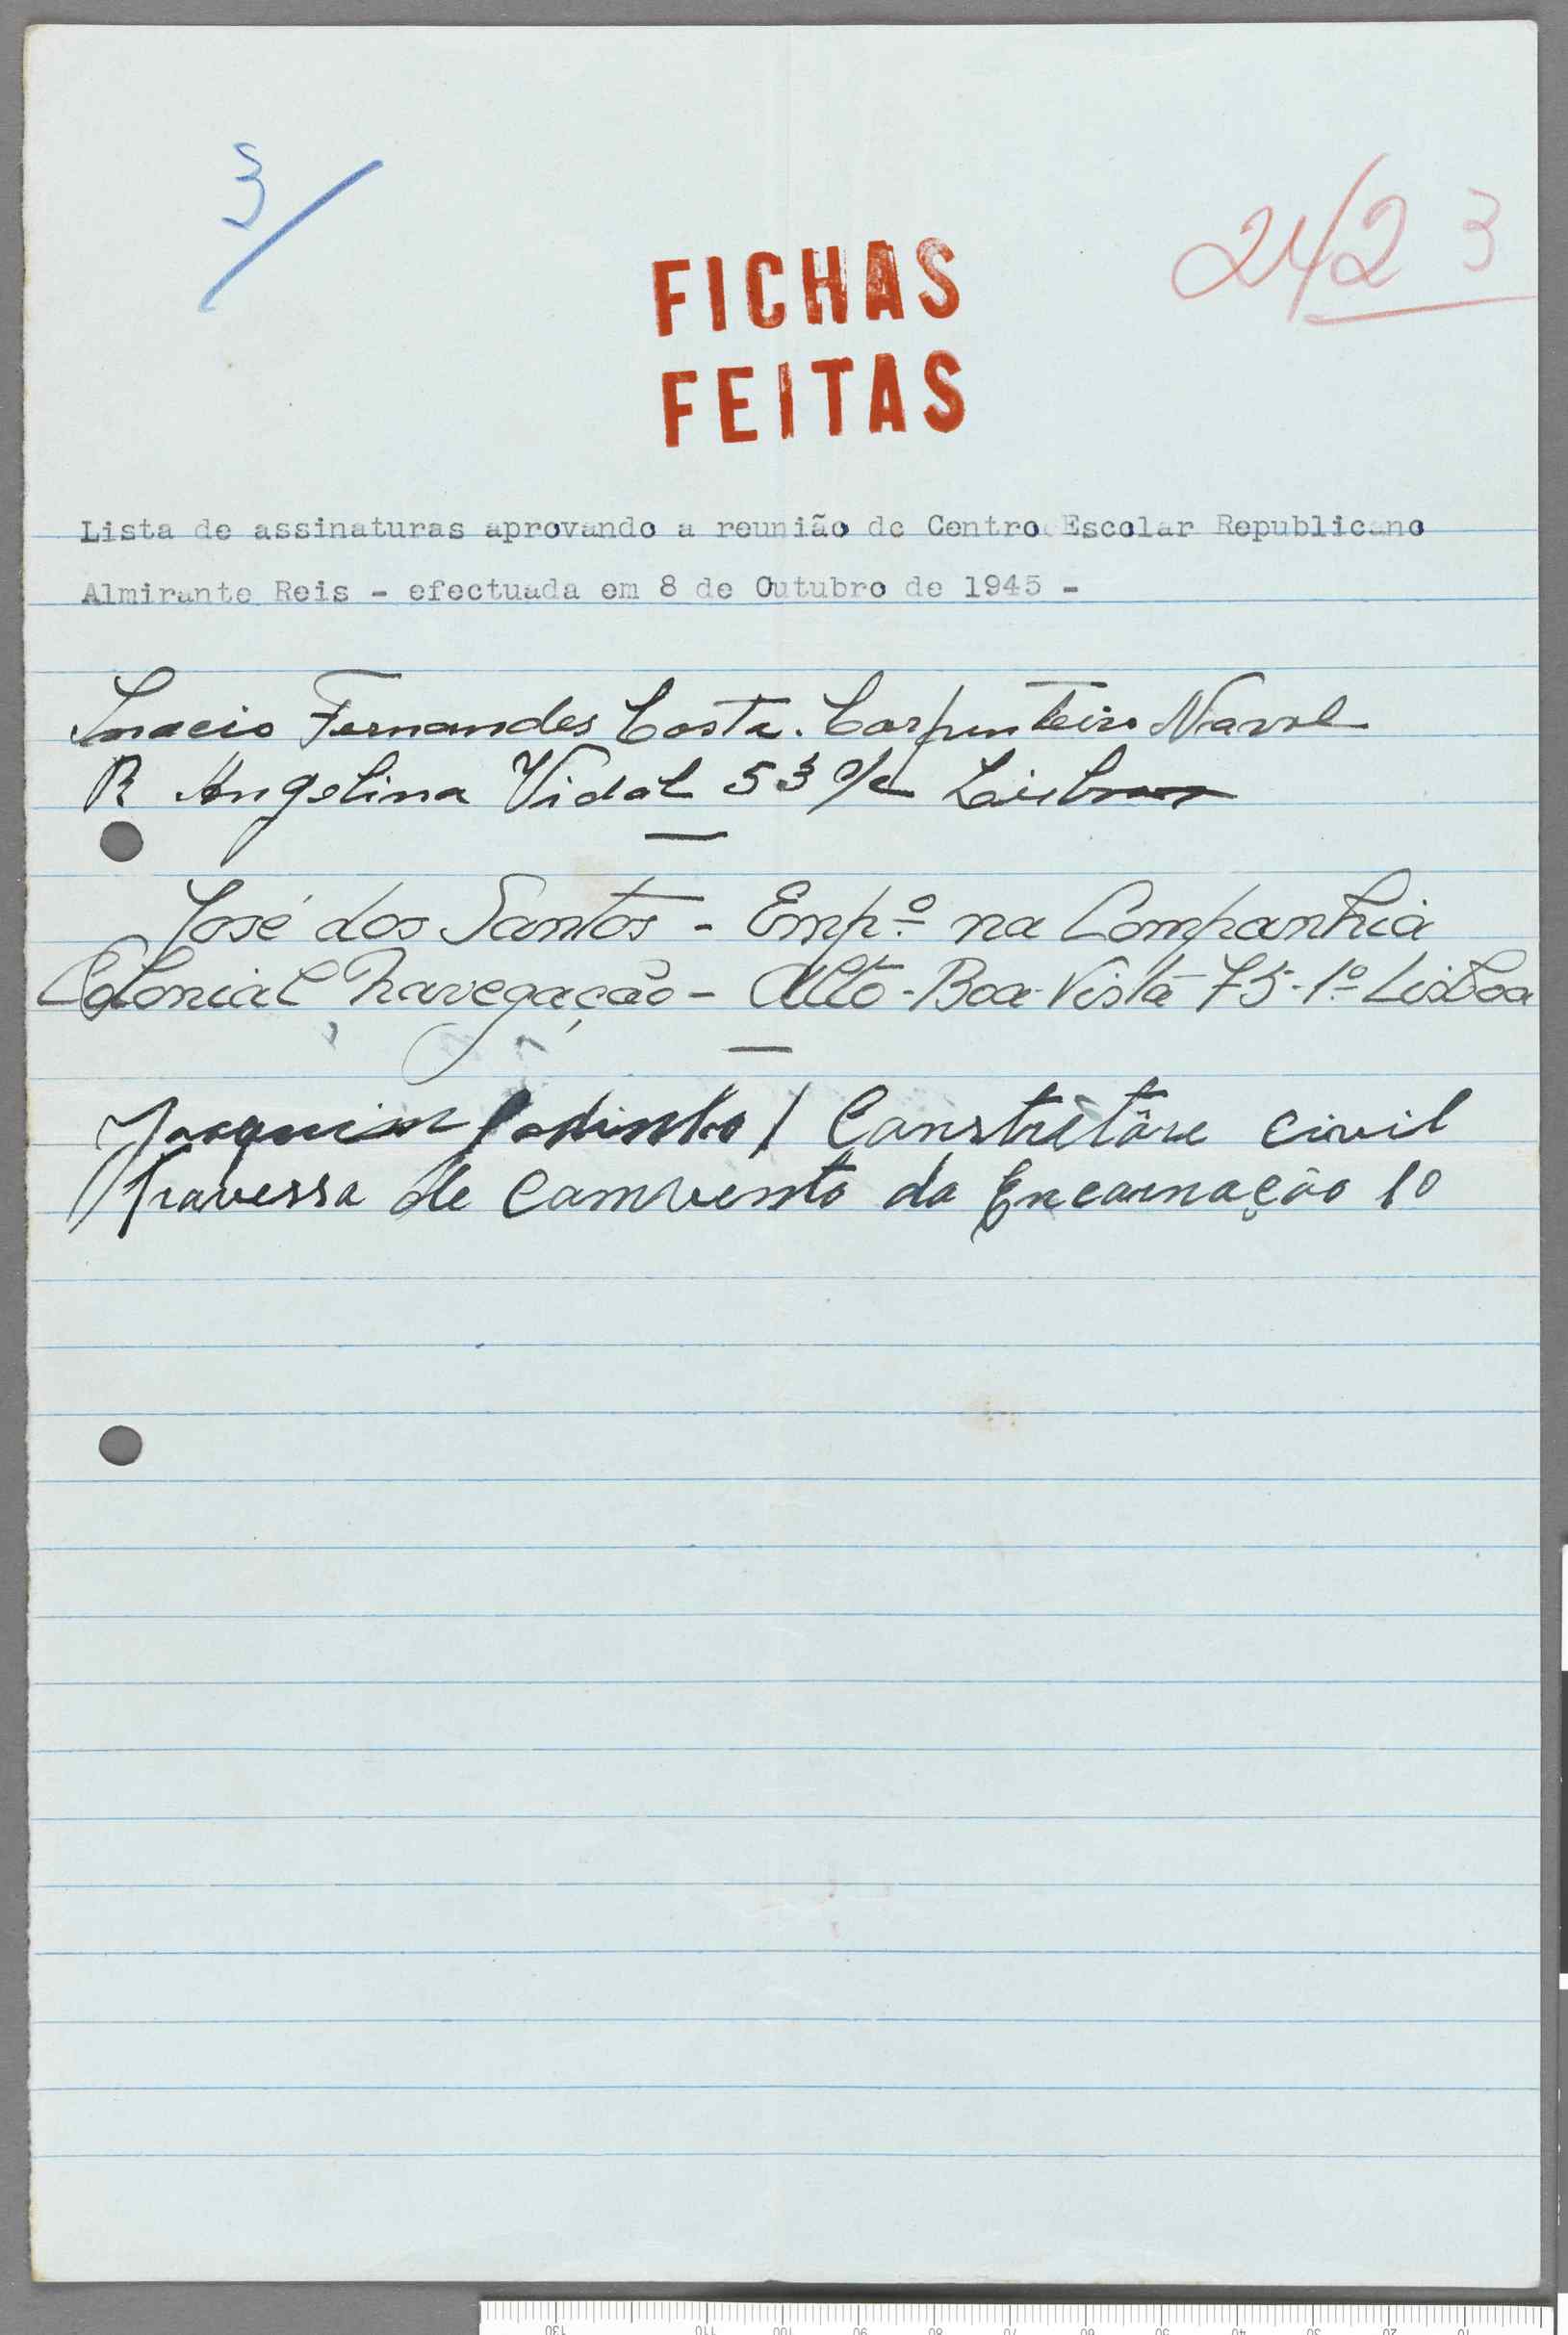 3/
24/2 3
FICHAS
FEITAS
Lista de assinaturas aprovando a reunião do Centro Escolar Republicano
Almirante Reis - efectuada em 8 de Outubro de 1945 -
Inacio Fernandes Costa. Carpinteiro Naval
R Angelina Vidal 53 Lisboa
José dos Santos - Empº na Companhia
Colonial Navegação - Alto-Boa-Vista 75-1º Lisboa
Joaquim Godinho / Constritôre civil
Travessa de Comvento da Encarnação 10